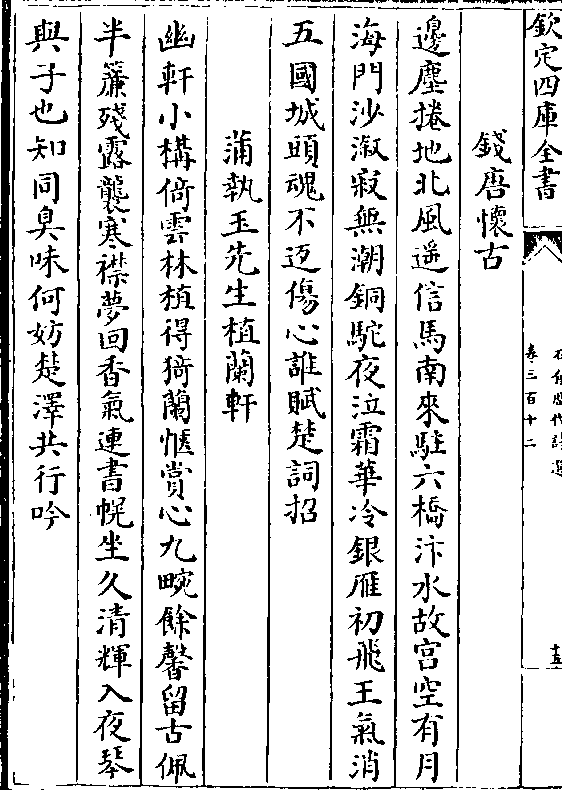 欽定四庫全書
卷三百十二
十五
錢唐懷古
邊塵捲地北風遥信馬南來駐六橋汴水故宫空有月
海門沙漵寂無潮銅駝夜泣霜華冷銀雁初飛王氣消
五國城頭魂不返傷心誰賦楚詞招
蒲執玉先生植蘭軒
幽軒小構倚雲林植得猗蘭愜賞心九畹餘馨留古佩
半簾殘露襲寒襟夢回香氣連書幌坐久清輝入夜琴
與子也知同臭味何妨楚澤共行吟